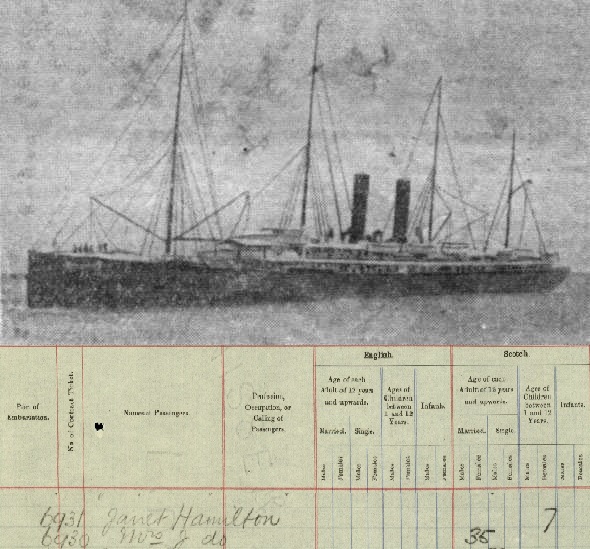 English.
Scotch.
Port of Embarkation.
No. of Contract Ticket.
Names of Passengers.
Profession, Occupation, or Calling of Passengers.
Age of each Adult of 12 years and upwards.
Ages of Children between 1 and 12 Years.
Infants.
Age of each Adult of 12 years and upwards.
Ages of Children between 1 and 12 Years.
Infants.
Married. Single.
Married. Single.
Males Females Males Females Males Females Males Females
Males Females Males Females Males Females Males Females
6931 Janet Hamilton 7
6930 Mrs J do 35